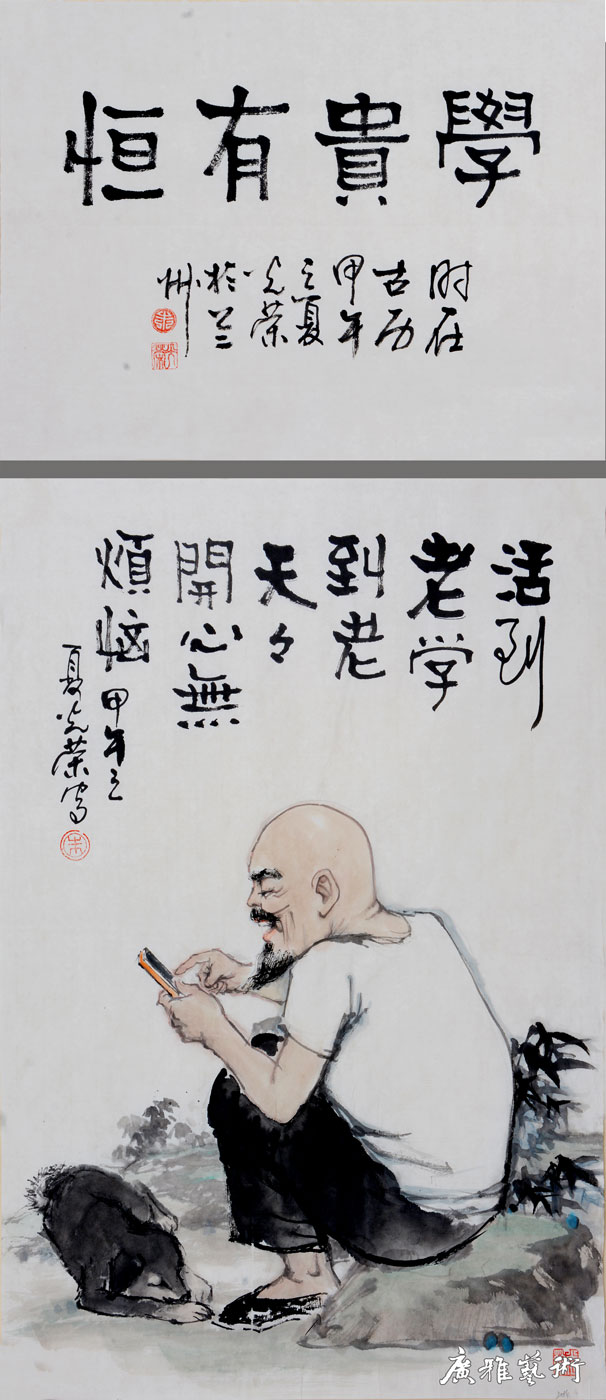 學貴有恒
时在
古历
甲午
之夏
光荣
於兰
州
活到
老学
到老
天々
開心無
煩恼 甲午之
夏光荣写
廣雅藝術